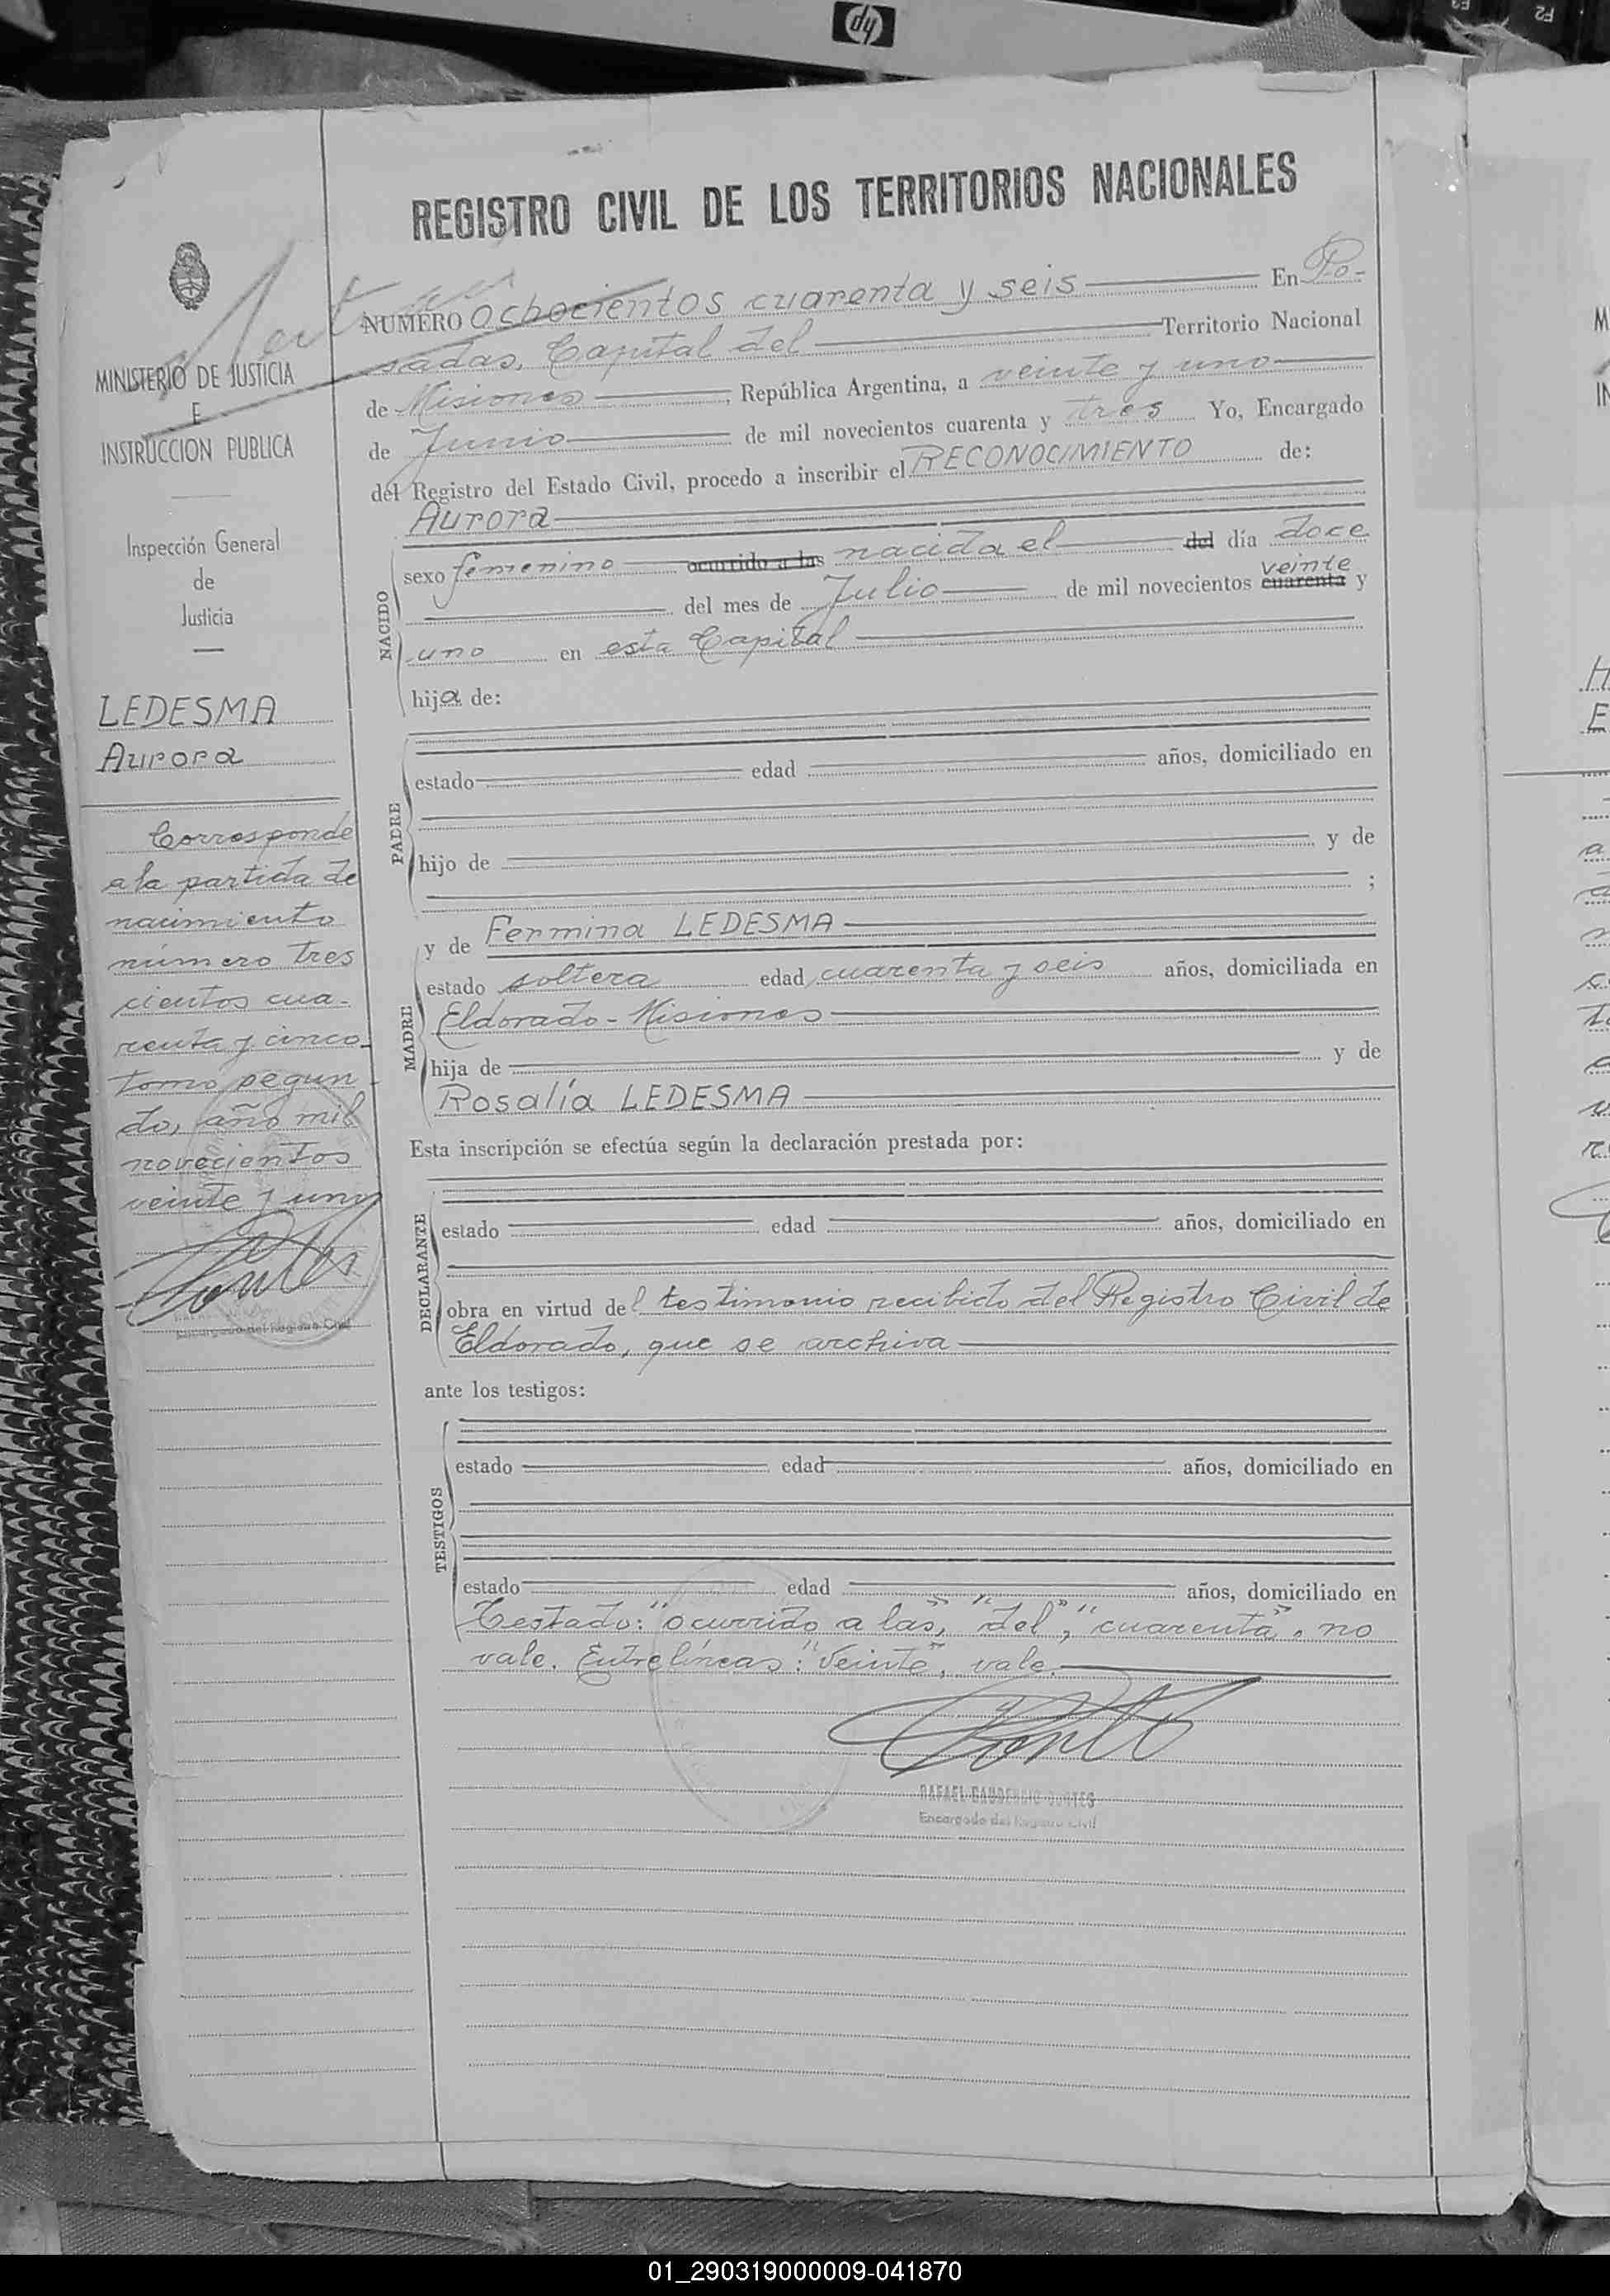 hp
F2
REGISTRO CIVIL DE LOS TERRITORIOS NACIONALES
NUMERO ochocientos cuarenta y seis En Po-
sadas, Capital del Territorio Nacional
de Misiones, República Argentina, a veinte y uno
de Junio de mil novecientos cuarenta y tres Yo, Encargado
del Registro del Estado Civil, procedo a inscribir el RECONOCIMIENTO de:
MINISTERIO DE JUSTICIA
E
INSTRUCCION PUBLICA
Inspección General
de
Justicia
LEDESMA
Aurora
Corresponde
a la partida de
nacimiento
número tres
cientos cua-
renta y cinco
tomo segun-
do, año mil
novecientos
veinte y uno
Encargado del Registro Civil
NACIDO
Aurora
sexo femenino ocurrido a las nacida el del día doce
veinte
del mes de Julio de mil novecientos cuarenta y
uno en esta Capital
hija de:
PADRE
estado edad años, domiciliado en
hijo de y de
;
MADRE
y de Fermina LEDESMA
estado soltera edad cuarenta y seis años, domiciliada en
Eldorado - Misiones
hija de y de
Rosalía LEDESMA
Esta inscripción se efectúa según la declaración prestada por:
DECLARANTE
estado edad años, domiciliado en
obra en virtud del testimonio recibido del Registro Civil de
Eldorado, que se archiva
ante los testigos:
TESTIGOS
estado edad años, domiciliado en
estado edad años, domiciliado en
Testado: "ocurrido a las", "del", "cuarenta", no
vale. Entrelíneas: "Veinte", vale.
RAFAEL GAUDENCIO
Encargado del Registro Civil
01_290319000009-041870